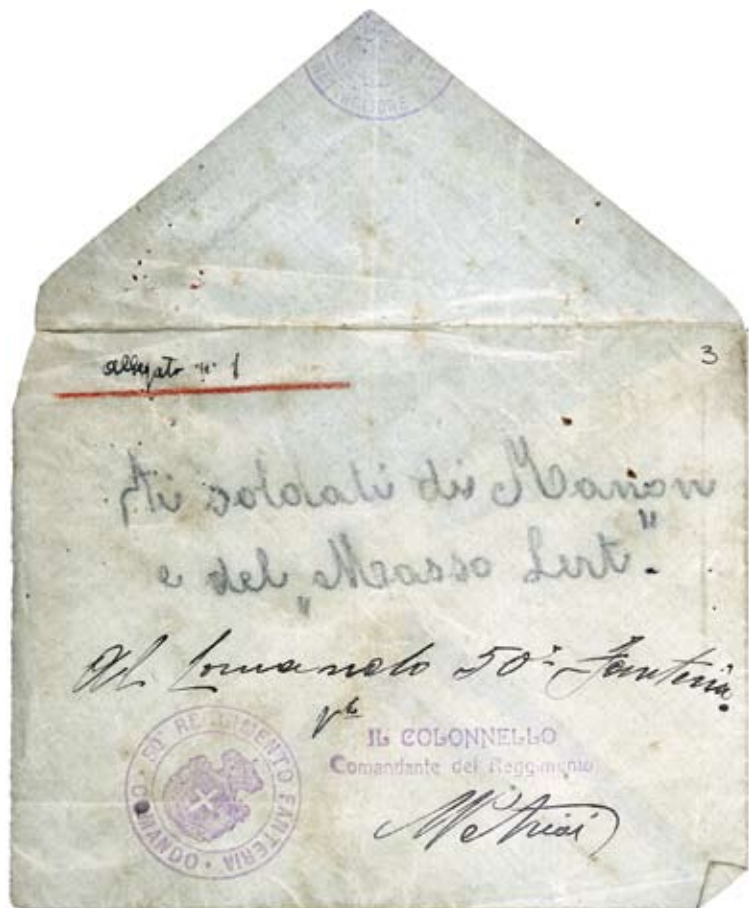 allegato n° 1
3
Ai soldati di Monon
e del "Masso Lert".
Al Comando 50° Fanteria.
IL COLONNELLO
Comandante del Reggimento
50° REGGIMENTO FANTERIA
COMANDO